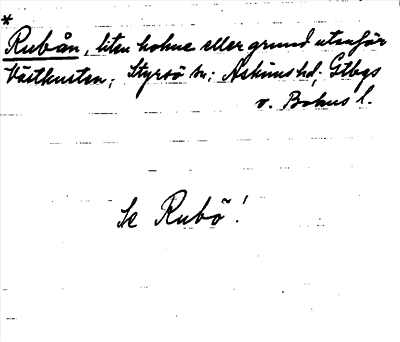 *
Rubån, liten holme eller grund utanför
Västkusten; Styrsö sn; Askims hd; Gtbgs
o. Bohus l.
Se Rubö!